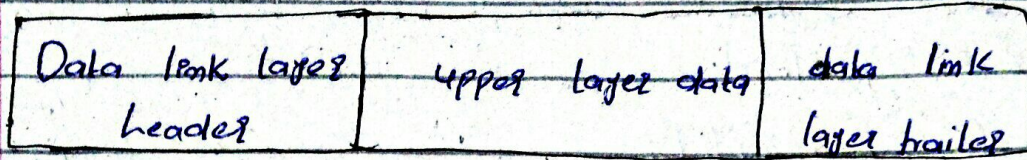 Data link layer
header
upper layer data
data link
layer trailer